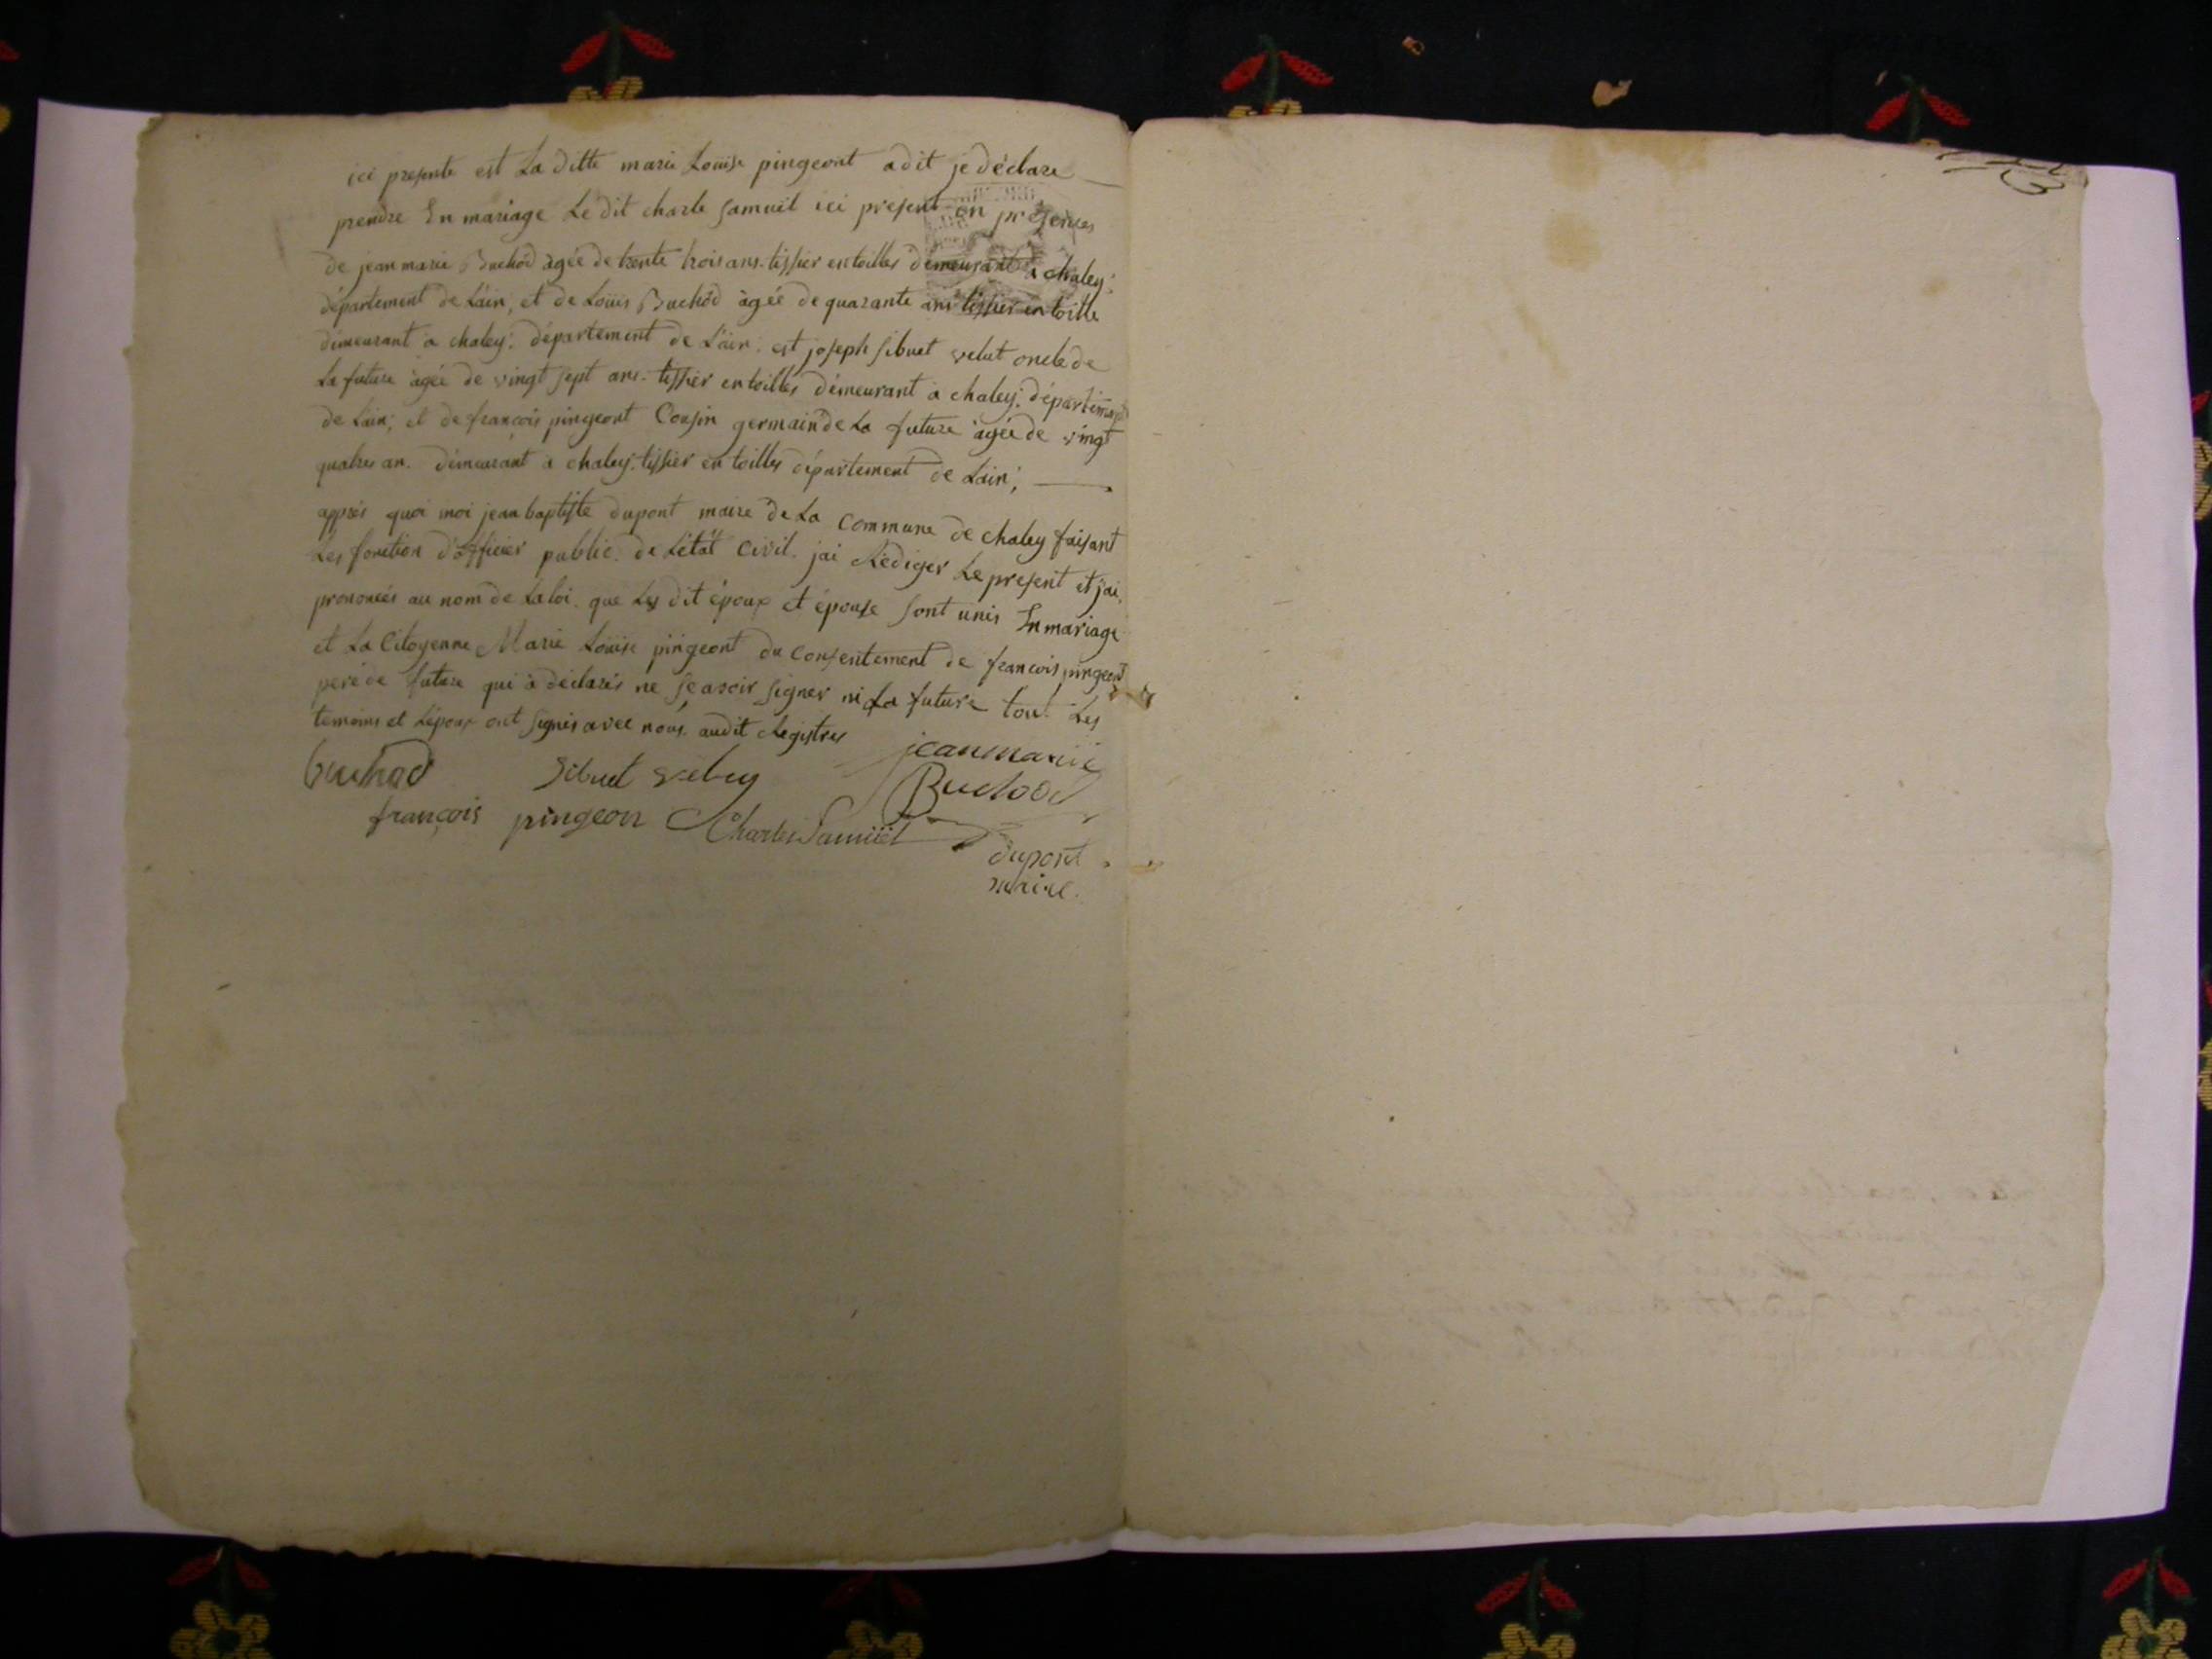 ici presente est La ditte marie Louise pingeont a dit je déclare
prendre En mariage Le dit charle samuël ici present en présences
de jean marie Buchôd agée de trente trois ans. tissier en toilles demeurant a chaley;
département de L'ain, et de Louis Buchôd àgée de quarante ans tissier en toille
démeurant à chaley: département de L'ain: est joseph sibuet velut oncle de
La future àgée de vingt sept ans. tissier en toilles démeurant à chaley. département
de Lain; et de françois pingeont Cousin germain de La future àgée de vingt
quatres an. démeurant a chaley. tissier en toilles département de Lain;
apprés quoi moi jean baptiste dupont maire de La Commune de chaley faisant
Les fonction d'officier public. de L'état Civil. jai Rédiger Le present et j'ai
prononcés au nom de La loi. que Les dit époux et épouse sont unis En mariage
et La Citoyenne Marie Louise pingeont du Consentement de francois pingeont
pere de future qui à déclarés ne sçavoir signer ni La future tout Les
temoins et L'époux ont signés avec nous. audit Registres
buchod Sibuet jeanmarie
Buchod
françois pingeon Charles Samuël
dupont
maire.